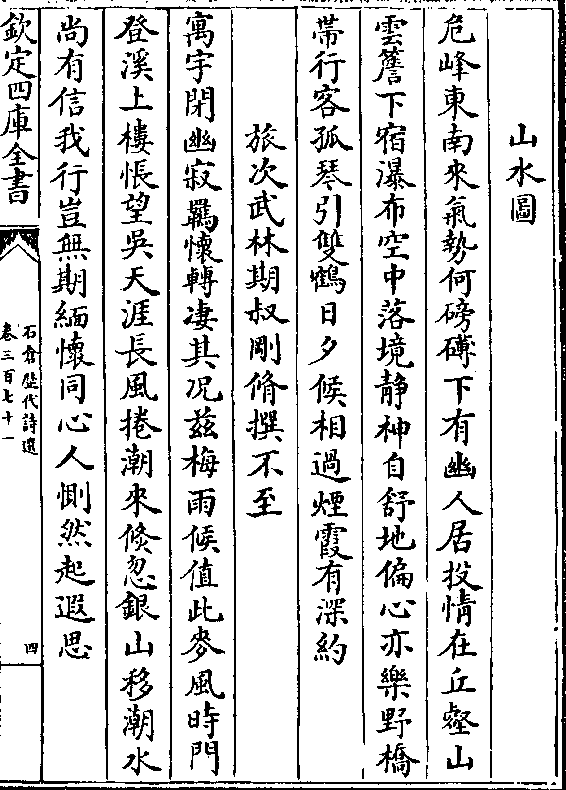 山水圖
危峰東南來氣勢何磅礴下有幽人居投情在丘壑山
雲簷下宿瀑布空中落境靜神自舒地偏心亦樂野橋
帶行客孤琴引雙鶴日夕候相過煙霞有深約
旅次武林期叔剛脩撰不至
寓宇閉幽寂羈懷轉淒其况兹梅雨候值此麥風時門
登溪上樓悵望吳天涯長風捲潮來倐忽銀山移潮水
尚有信我行豈無期緬懷同心人惻然起遐思
欽定四庫全書
石倉歷代詩選
卷三百七十一
四